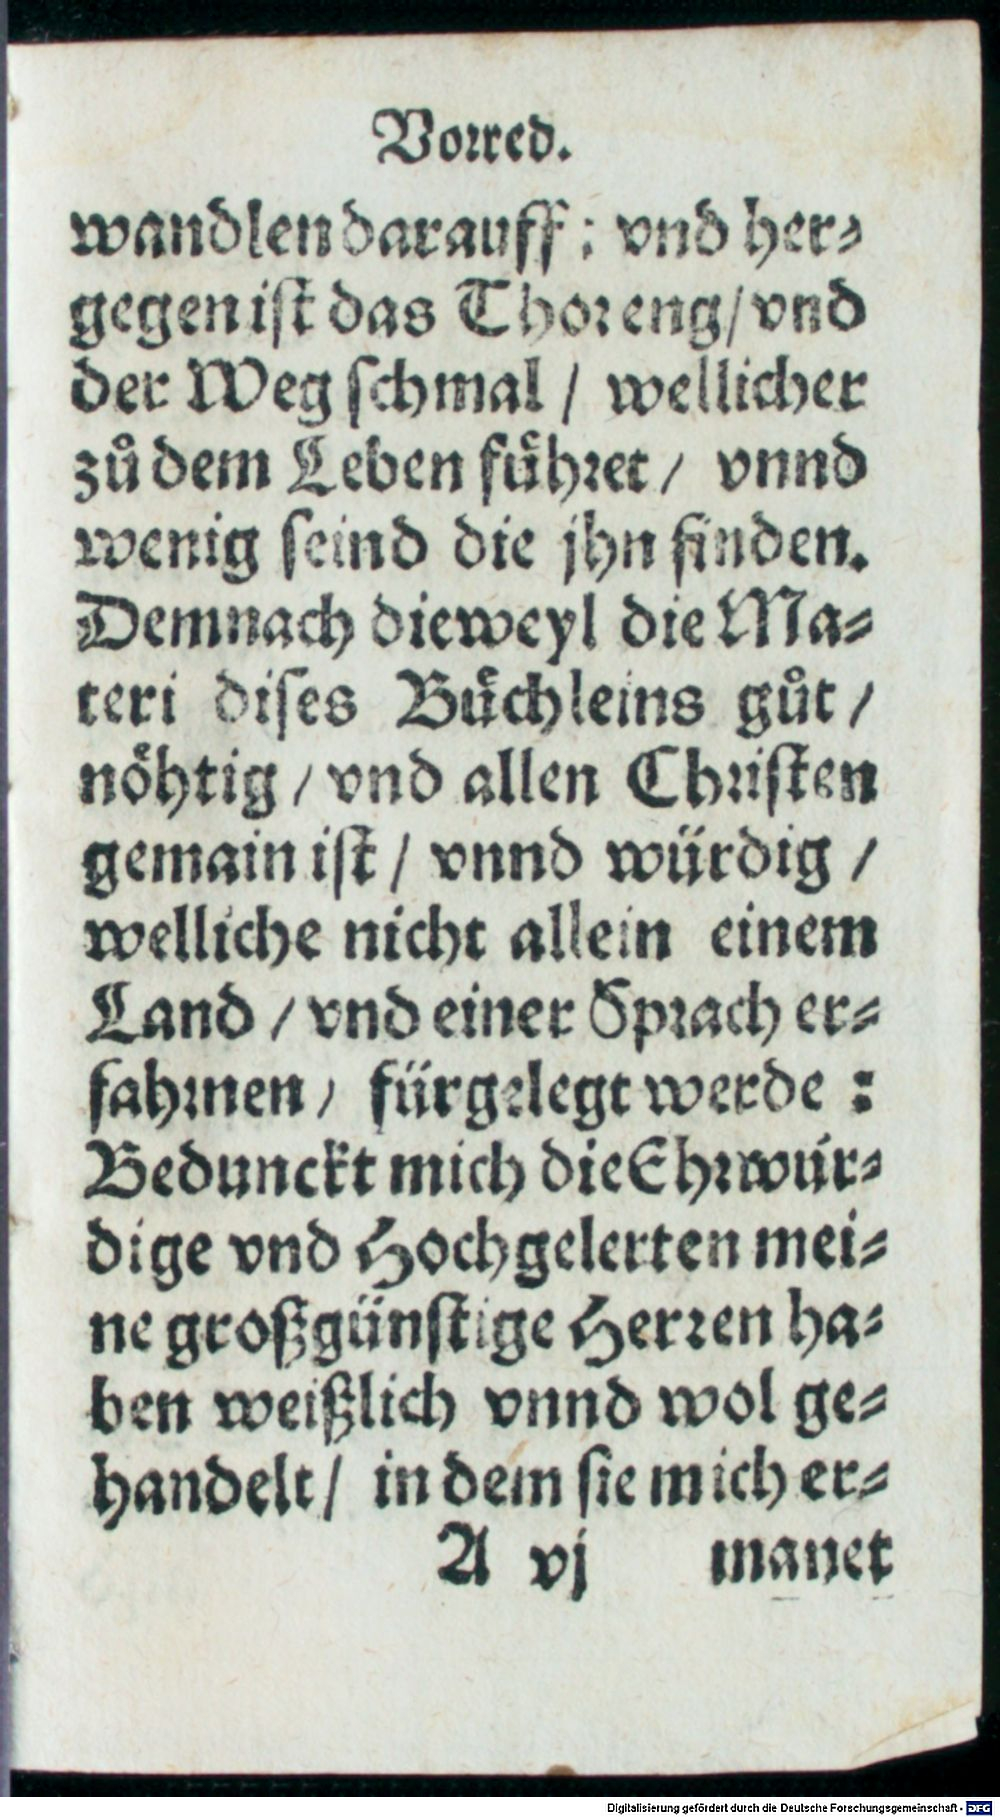 Vorred.
wandlen darauff: vnd her-
gegen ist das Thor eng/ vnd
der Weg schmal / wellicher
zů dem Leben fuͤhret / vnnd
wenig seind die jhn finden.
Demnach dieweyl die Ma-
teri dises Buͤchleins gůt /
noͤhtig / vnd allen Christen
gemain ist / vnnd würdig /
welliche nicht allein einem
Land / vnd einer Sprach er-
fahrnen / fürgelegt werde :
Bedunckt mich die Ehrwür-
dige vnd Hochgelerten mei-
ne großgünstige Herren ha-
ben weißlich vnnd wol ge-
handelt / in dem sie mich er-
A vj manet
Digitalisierung gefördert durch die Deutsche Forschungsgemeinschaft - DFG